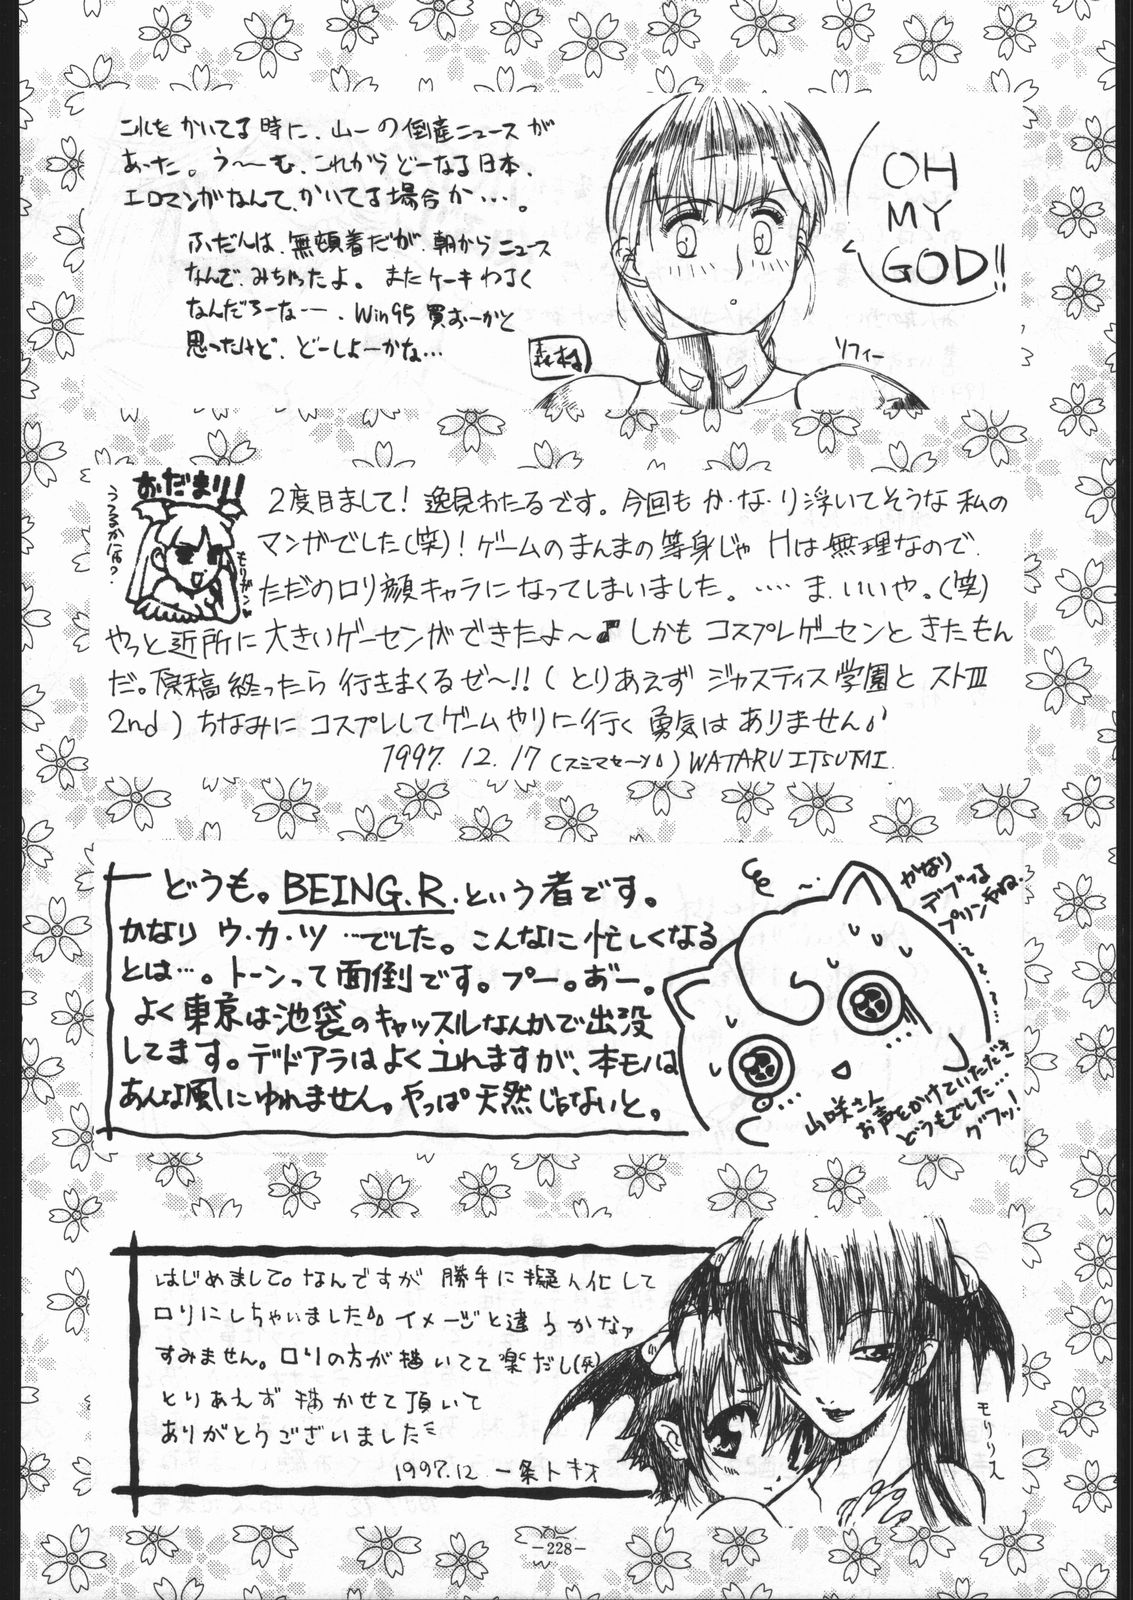 これをかいてる時に、山一の倒産ニュースが
あった。う〜む、これからどーなる日本、
エロマンガなんて、かいてる場合か…。
ふだんは、無頓着だが、朝からニュース
なんで、みちゃったよ。またケーキわるく
なんだろーなー、Win95買おーかと
思ったけど、どーしよーかな…
OH
MY
GOD!!
森村
ソフィー
おだまり!!
うるさいね?
モリガン
2度目まして!逸見わたるです。今回もか・な・り浮いてそうな私の
マンガでした(笑)!ゲームのまんまの等身じゃHは無理なので、
ただのロリ顔キャラになってしまいました。……ま、いいや。(笑)
やっと近所に大きいゲーセンができたよ〜♪しかもコスプレゲーセンときたもん
だ。原稿終ったら行きまくるぜ〜!!(とりあえずジャスティス学園とストIII
2nd)ちなみにコスプレしてゲームやりに行く勇気はありません
1997.12.17(スミマセーン)WATARU ITSUMI.
どうも。BEING.R.という者です。
かなりウ・カ・ツ…でした。こんなに忙しくなる
とは…。トーンって面倒です。プー。あ゛ー。
よく東京は池袋のキャッスルなんかで出没
してます。デドアラはよくユれますが、本モノは
あんな風にゆれません。やっぱ天然じゃないと。
かなり
デブいる
プリンやね
山咲さん
お声をかけていただき
どうもでした…
グフッ!
はじめまして。なんですが勝手に擬人化して
ロリにしちゃいました イメージと違うかなァ
すみません。ロリの方が描いてて楽だし(死)
とりあえず描かせて頂いて
ありがとうございました
1997.12. 一条トキオ
モリリス
-228-